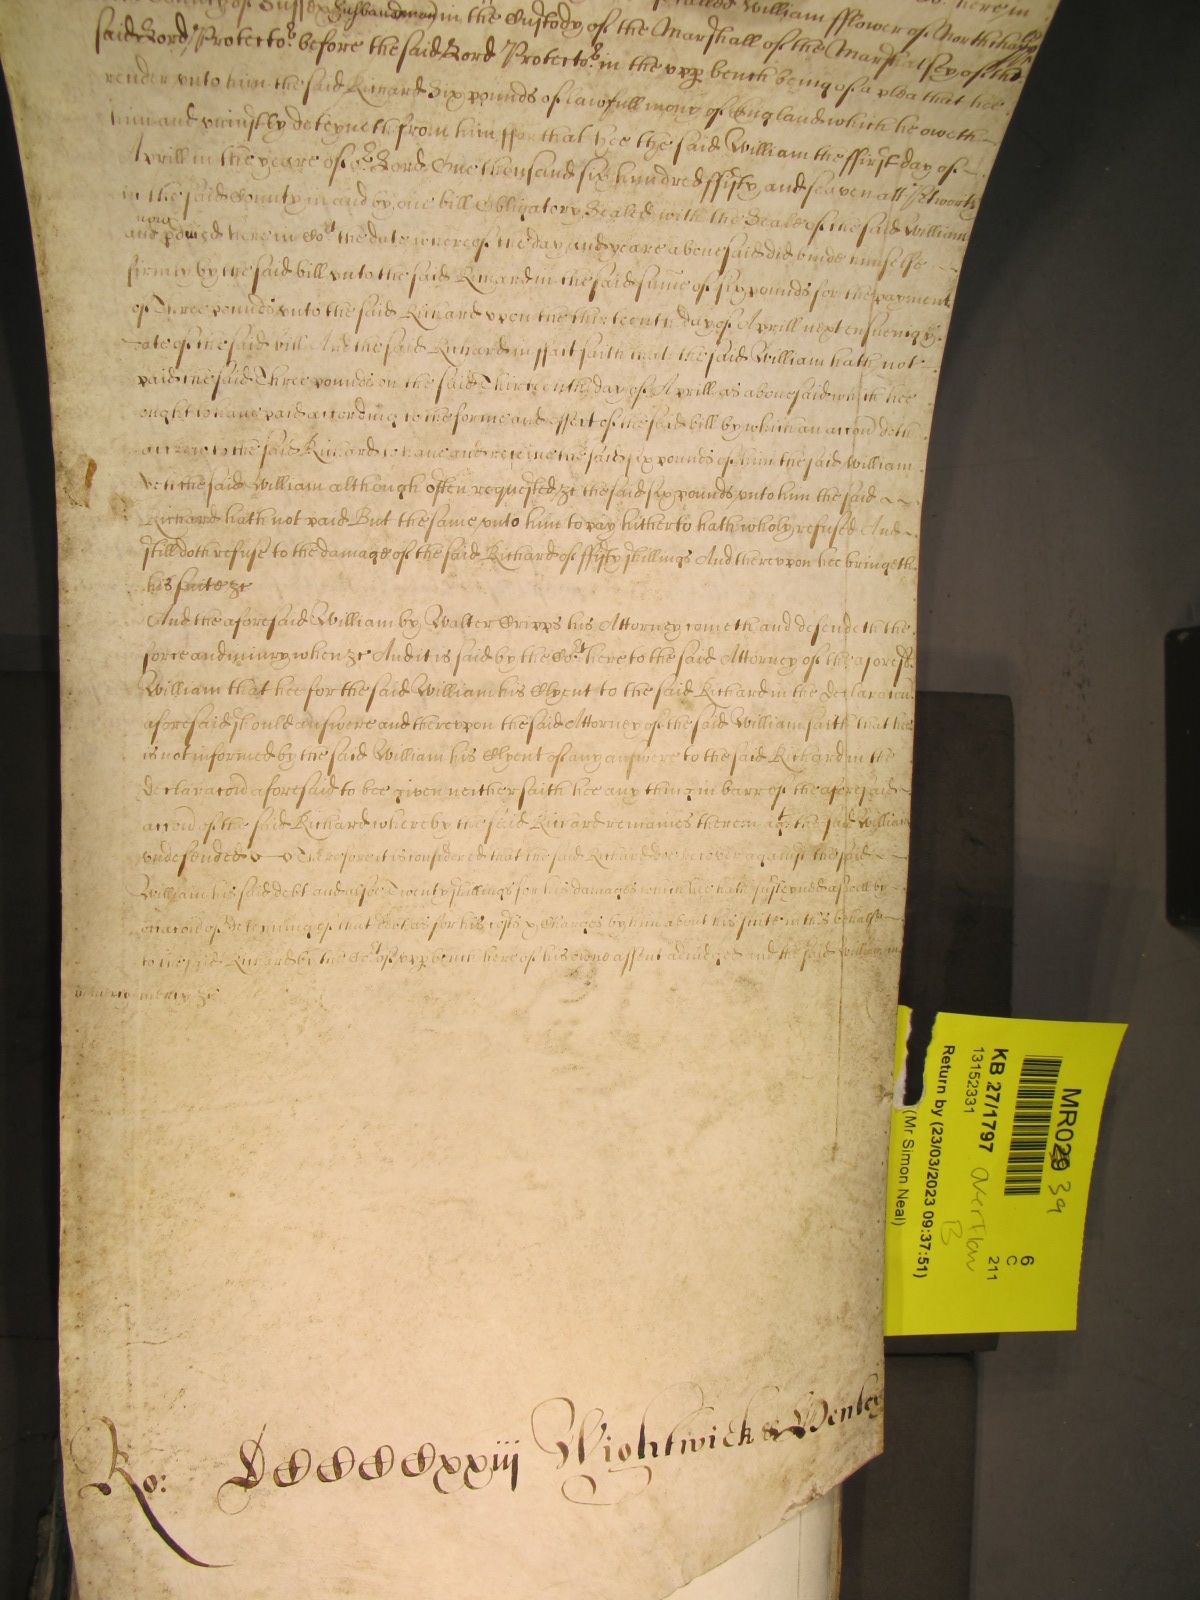 County of Sussex Husbandman in the Custody of the Marshall of the Marshalsey of the
called William fflower of Northchap
said Lord Protector before the said Lord Protector in the upper bench being of a plea that hee
render vnto him the said Richard Six pounds of lawfull mony of England which he oweth
him and vniustly deteyneth from him ffor that hee the said William the ffirst day of
Aprill in the yeare of or Lord One thousand six hundred ffifty and seaven att Petworth
in the said County in and by one bill Obligatory Sealed with the Seale of the said William
and now here in Cort the date whereof the day and yeare abouesaid did binde himselfe
firmly by the said bill vnto the said Richard in the said sume of six pounds for the payment
of Three pounds vnto the said Richard vpon the thirteenth day of Aprill next ensueing ye
date of the said bill And the said Richard in ffact saith that the said William hath not
paid the said Three pounds on the said Thirteenth day of Aprill as abouesaid which hee
ought to haue paid according to the forme and effect of the said bill by which an accon doth
accrew to the said Richard to haue and receiue the said six pounds of him the said William
Yett the said William although often requested &c the said six pounds vnto him the said
Richard hath not paid But the same vnto him to pay hitherto hath wholy refused And
still doth refuse to the damage of the said Richard of ffifty shillings And therevpon hee bringeth
his suite &c
And the aforesaid William by Walter Cripps his Attorney cometh and defendeth the
force and iniury when &c And it is said by the Cort here to the said Attorney of the aforesd
William that hee for the said William his Clyent to the said Richard in the declaracon
aforesaid should answere and therevpon the said Attorney of the said William saith that hee
is not informed by the said William his Clyent of any answere to the said Richard in the
declaracon aforesaid to bee given neither saith hee any thing in barr of the aforesaid
accon of the said Richard whereby the said Richard remaines therein agt the said William
vndefended Therefore it is considered that the said Richard doe recover against the said
William his said debt and alsoe Twenty shillings for his damages which hee hath susteyned aswell by
occacon of deteyning of that debt as for his costs & Charges by him about his suite in this behalfe
to the said Richard by the Cort of vpper bench here of his owne assent adiudged and the said William
in mercy &c
Ro: DCCCCCxxiij Wightwick & Henley
MR029 39
KB 27/1797
13152331
Overflow
B
6
C
211
Return by (23/03/2023 09:37:51)
(Mr Simon Neal)